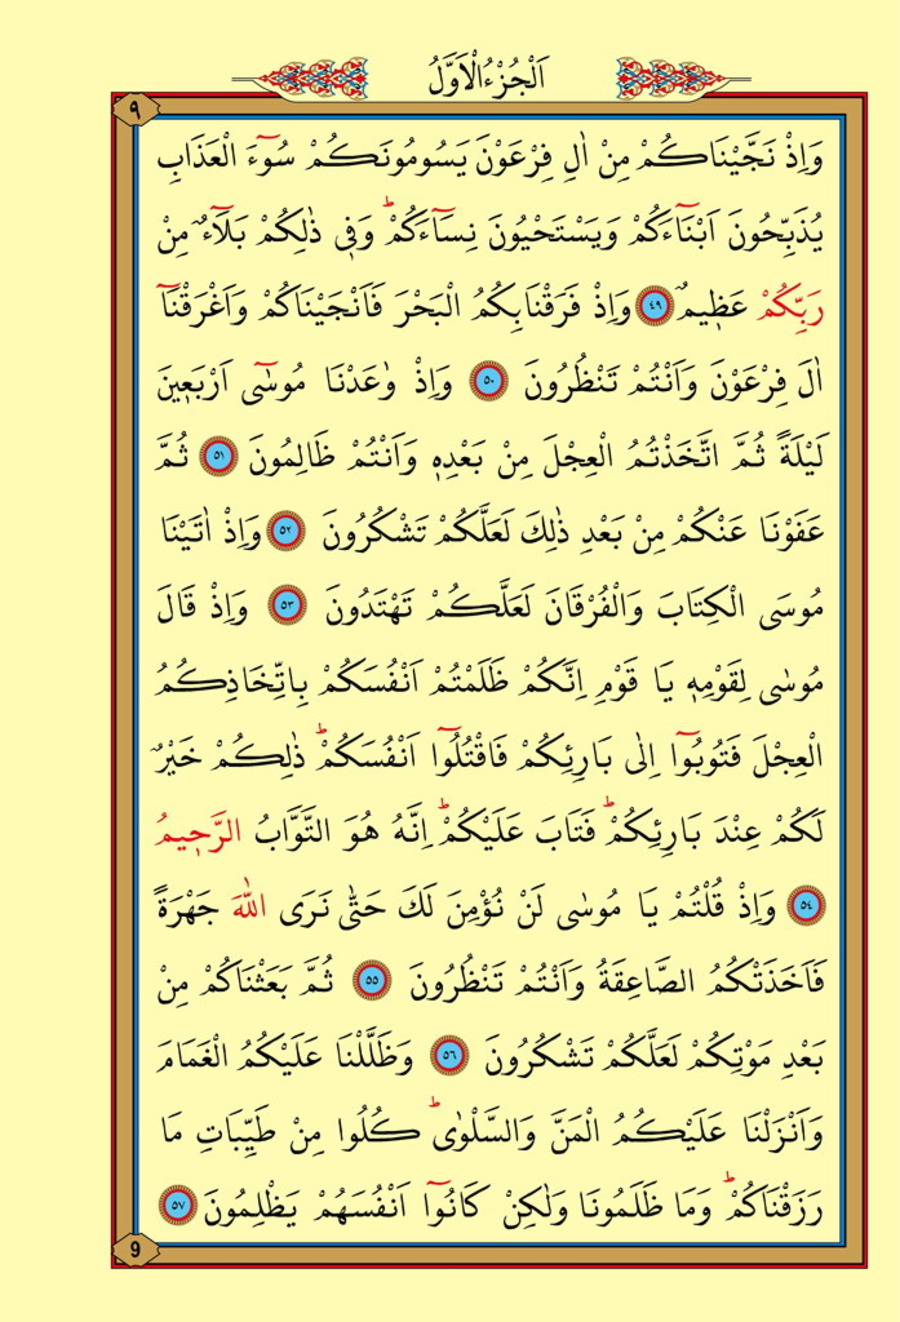 اَلْجُزْءُ الْاَوَّلُ
٩
وَاِذْ نَجَّيْنَاكُمْ مِنْ اٰلِ فِرْعَوْنَ يَسُومُونَكُمْ سُوٓءَ الْعَذَابِ
يُذَبِّحُونَ اَبْنَٓاءَكُمْ وَيَسْتَحْيُونَ نِسَٓاءَكُمْۜ وَفٖي ذٰلِكُمْ بَلَٓاءٌ مِنْ
رَبِّكُمْ عَظٖيمٌ ٤٩ وَاِذْ فَرَقْنَا بِكُمُ الْبَحْرَ فَاَنْجَيْنَاكُمْ وَاَغْرَقْنَٓا
اٰلَ فِرْعَوْنَ وَاَنْتُمْ تَنْظُرُونَ ٥٠ وَاِذْ وٰعَدْنَا مُوسٰٓى اَرْبَعٖينَ
لَيْلَةً ثُمَّ اتَّخَذْتُمُ الْعِجْلَ مِنْ بَعْدِهٖ وَاَنْتُمْ ظَالِمُونَ ٥١ ثُمَّ
عَفَوْنَا عَنْكُمْ مِنْ بَعْدِ ذٰلِكَ لَعَلَّكُمْ تَشْكُرُونَ ٥٢ وَاِذْ اٰتَيْنَا
مُوسَى الْكِتَابَ وَالْفُرْقَانَ لَعَلَّكُمْ تَهْتَدُونَ ٥٣ وَاِذْ قَالَ
مُوسٰى لِقَوْمِهٖ يَا قَوْمِ اِنَّكُمْ ظَلَمْتُمْ اَنْفُسَكُمْ بِاتِّخَاذِكُمُ
الْعِجْلَ فَتُوبُٓوا اِلٰى بَارِئِكُمْ فَاقْتُلُٓوا اَنْفُسَكُمْۜ ذٰلِكُمْ خَيْرٌ
لَكُمْ عِنْدَ بَارِئِكُمْۜ فَتَابَ عَلَيْكُمْۜ اِنَّهُ هُوَ التَّوَّابُ الرَّحٖيمُ
٥٤ وَاِذْ قُلْتُمْ يَا مُوسٰى لَنْ نُؤْمِنَ لَكَ حَتّٰى نَرَى اللّٰهَ جَهْرَةً
فَاَخَذَتْكُمُ الصَّاعِقَةُ وَاَنْتُمْ تَنْظُرُونَ ٥٥ ثُمَّ بَعَثْنَاكُمْ مِنْ
بَعْدِ مَوْتِكُمْ لَعَلَّكُمْ تَشْكُرُونَ ٥٦ وَظَلَّلْنَا عَلَيْكُمُ الْغَمَامَ
وَاَنْزَلْنَا عَلَيْكُمُ الْمَنَّ وَالسَّلْوٰىۜ كُلُوا مِنْ طَيِّبَاتِ مَا
رَزَقْنَاكُمْۜ وَمَا ظَلَمُونَا وَلٰكِنْ كَانُٓوا اَنْفُسَهُمْ يَظْلِمُونَ ٥٧
9